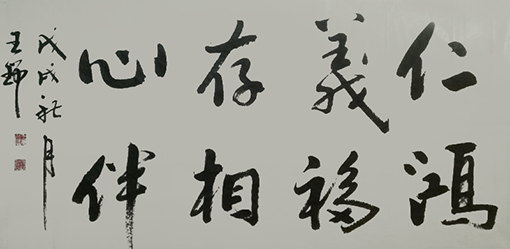 仁義存心
鴻福相伴
戊戌秋月
王